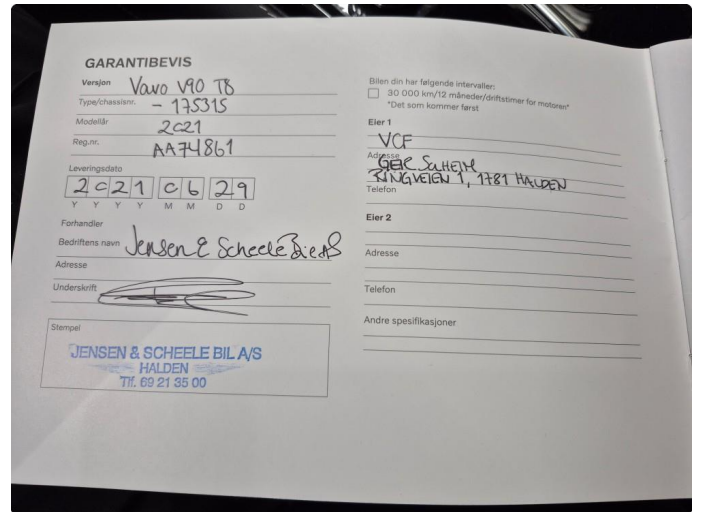 GARANTIBEVIS
Versjon Volvo V90 T8
Type/chassisnr. - 175315
Modellår 2021
Reg.nr. AA74861
Leveringsdato
2021 06 29
Y Y Y Y M M D D
Forhandler
Bedriftens navn Jensen & Scheele Bil AS
Adresse
Underskrift
Stempel
JENSEN & SCHEELE BIL A/S
HALDEN
Tlf. 69 21 35 00
Bilen din har følgende intervaller:
30 000 km/12 måneder/driftstimer for motoren*
*Det som kommer først
Eier 1
VCF
Adresse GEIR
RINGVEIEN 1, 1781 HALDEN
Telefon
Eier 2
Adresse
Telefon
Andre spesifikasjoner